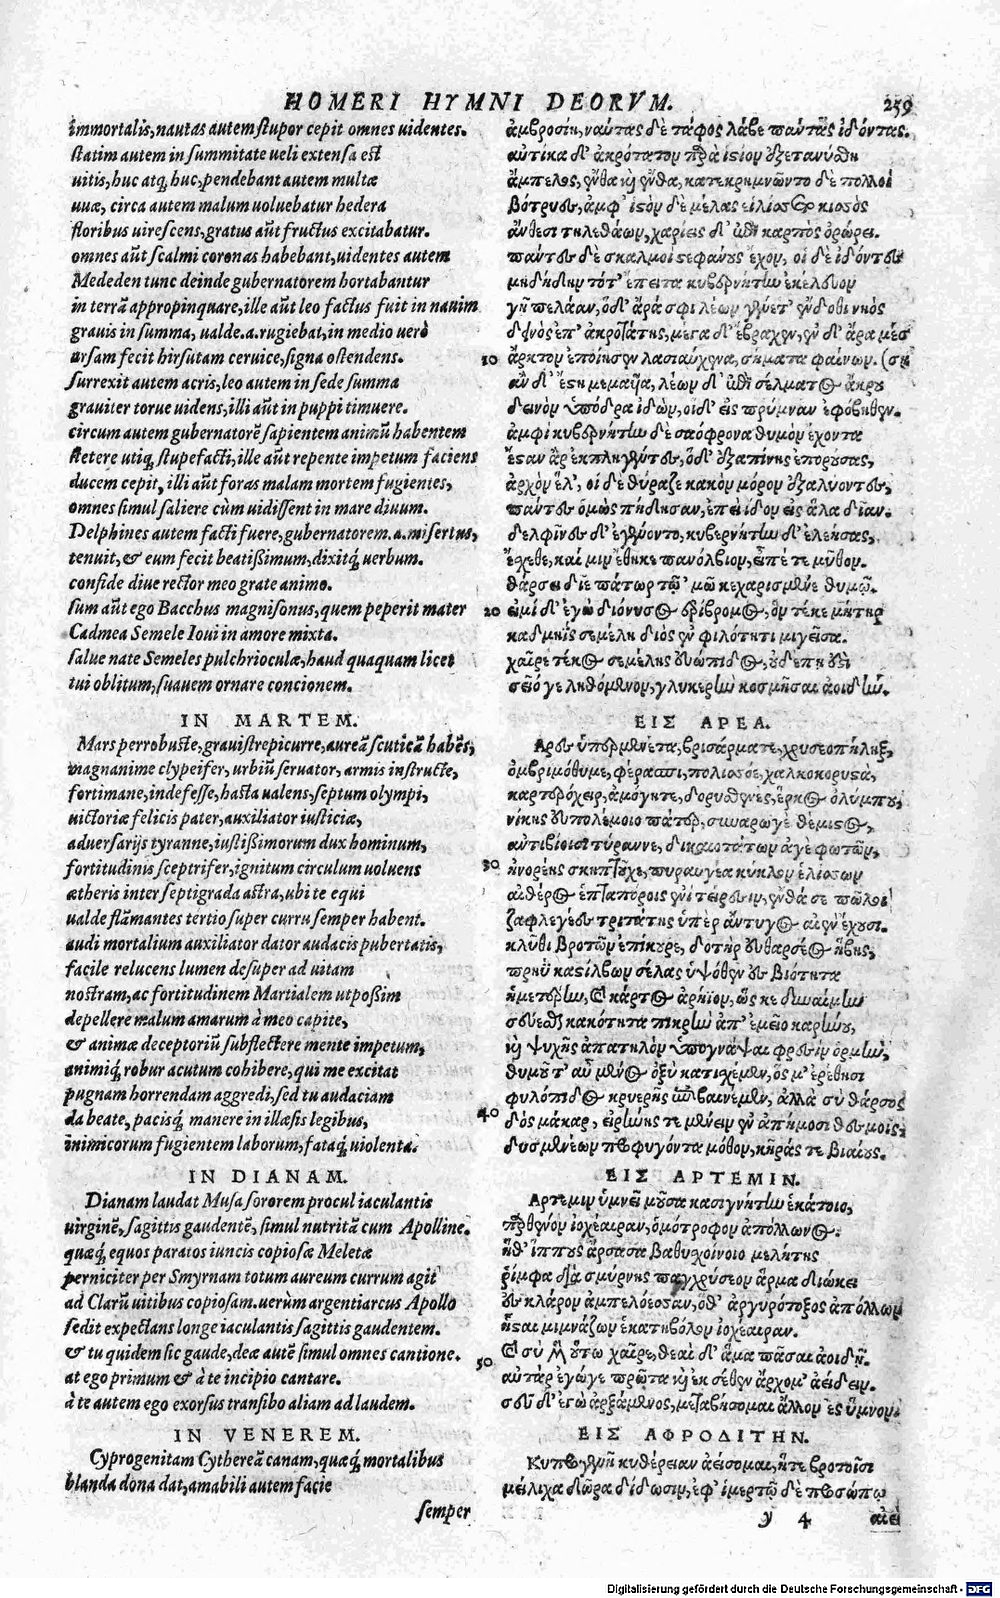 HOMERI HYMNI DEORVM.
259
immortalis, nautas autem stupor cepit omnes uidentes.
statim autem in summitate ueli extensa est
uitis, huc atq; huc, pendebant autem multæ
uuæ, circa autem malum uoluebatur hedera
floribus uirescens, gratus aũt fructus excitabatur.
omnes aũt scalmi coronas habebant, uidentes autem
Mededen tunc deinde gubernatorem hortabantur
in terrã appropinquare, ille aũt leo factus fuit in nauim
grauis in summa, ualde.a.rugiebat, in medio uerò
ursam fecit hirsutam ceruice, signa ostendens.
surrexit autem acris, leo autem in sede summa
grauiter torue uidens, illi aũt in puppi timuere.
circum autem gubernatorẽ sapientem animũ habentem
stetere utiq; stupefacti, ille aũt repente impetum faciens
ducem cepit, illi aũt foras malam mortem fugientes,
omnes simul saliere cùm uidissent in mare diuum.
Delphines autem facti fuere, gubernatorem.a.misertus,
tenuit, & eum fecit beatißimum, dixitq; uerbum.
confide diue rector meo grate animo.
sum aũt ego Bacchus magnisonus, quem peperit mater
Cadmea Semele Ioui in amore mixta.
salue nate Semeles pulchrioculæ, haud quaquam licet
tui oblitum, suauem ornare concionem.
IN MARTEM.
Mars perrobuste, grauistrepicurre, aureã scuticã habẽs,
magnanime clypeifer, urbiũ seruator, armis instructe,
fortimane, indefesse, hasta ualens, septum olympi,
uictoriæ felicis pater, auxiliator iusticiæ,
aduersarijs tyranne, iustißimorum dux hominum,
fortitudinis sceptrifer, ignitum circulum uoluens
ætheris inter septigrada astra, ubi te equi
ualde flãmantes tertio super curru semper habent.
audi mortalium auxiliator dator audacis pubertatis,
facile relucens lumen desuper ad uitam
nostram, ac fortitudinem Martialem ut possim
depellere malum amarum à meo capite,
& animæ deceptoriũ subflectere mente impetum,
animiq; robur acutum cohibere, qui me excitat
pugnam horrendam aggredi, sed tu audaciam
da beate, pacisq; manere in illæsis legibus,
inimicorum fugientem laborum, fataq; uiolenta.
IN DIANAM.
Dianam laudat Musa sororem procul iaculantis
uirginẽ, sagittis gaudentẽ, simul nutritã cum Apolline.
quæq; equos paratos iuncis copiosæ Meletæ
perniciter per Smyrnam totum aureum currum agit
ad Clarũ uitibus copiosam. uerùm argentiarcus Apollo
sedit expectans longe iaculantis sagittis gaudentem.
& tu quidem sic gaude, deæ autẽ simul omnes cantione.
at ego primum & à te incipio cantare.
à te autem ego exorsus transibo aliam ad laudem.
IN VENEREM.
Cyprogenitam Cythereã canam, quæq; mortalibus
blanda dona dat, amabili autem facie
semper
ἀμβροσίη, ναύτας δὲ τάφος λάβε πάντας ἰδόντας.
αὐτίκα δ' ἀκρότατον παρὰ ἱστίον ἐξετανύσθη
ἄμπελος, ἔνθα καὶ ἔνθα, κατεκρημνῶντο δὲ πολλοὶ
βότρυες, ἀμφ' ἱστὸν δὲ μέλας εἱλίσσετο κισσὸς
ἄνθεσι τηλεθάων, χαρίεις δ' ἐπὶ καρπὸς ὀρώρει.
πάντες δὲ σκαλμοὶ στεφάνους ἔχον, οἱ δὲ ἰδόντες
μηδήδην τότ' ἔπειτα κυβερνήτην ἐκέλευον
γῇ πελάαν, ὁ δ' ἄρα σφι λέων γένετ' ἔνδοθι νηὸς
δεινὸς ἐπ' ἀκροτάτης, μέγα δ' ἔβραχεν, ἐν δ' ἄρα μέσ
10 ἄρκτον ἐποίησεν λασιαύχενα, σήματα φαίνων. (ση
ἂν δ' ἔστη μεμαυῖα, λέων δ' ἐπὶ σέλματος ἄκρου
δεινὸν ὑπόδρα ἰδὼν, οἱ δ' εἰς πρύμναν ἐφόβηθεν.
ἀμφὶ κυβερνήτην δὲ σαόφρονα θυμὸν ἔχοντα
ἔσταν ἄρ ἐκπληγέντες, ὁ δ' ἐξαπίνης ἐπορούσας,
ἀρχὸν ἕλ', οἱ δὲ θύραζε κακὸν μόρον ἐξαλύοντες,
πάντες ὁμῶς πήδησαν, ἐπεὶ ἴδον εἰς ἅλα δῖαν.
δελφῖνες δ' ἐγένοντο, κυβερνήτην δ' ἐλεήσας,
ἔσχεθε, καί μιν ἔθηκε πανόλβιον, εἶπέ τε μῦθον.
θάρσει δῖε κάτωρ τῷ 'μῷ κεχαρισμένε θυμῷ.
20 εἰμὶ δ' ἐγὼ διόνυσος ἐρίβρομος, ὃν τέκε μήτηρ
καδμηῒς σεμέλη διὸς ἐν φιλότητι μιγεῖσα.
χαῖρε τέκος σεμέλης εὐώπιδος, οὐδέ πη ἔστι
σεῖό γε ληθόμενον, γλυκερὴν κοσμῆσαι ἀοιδήν.
ΕΙΣ ΑΡΕΑ.
Αρες ὑπερμενέτα, βρισάρματε, χρυσεοπήληξ,
ὀμβριμόθυμε, φέρασπι, πολισσόε, χαλκοκορυστὰ,
καρτερόχειρ, ἀμόγητε, δορυσθενὲς, ἕρκος ὀλύμπου,
νίκης εὐπολέμοιο πάτερ, συναρωγὲ θέμιστος,
ἀντιβίοισι τύραννε, δικαιοτάτων ἀγὲ φωτῶν,
30 ἠνορέης σκηπτοῦχε, πυραυγέα κύκλον ἑλίσσων
αἰθέρος ἑπταπόροις ἐνὶ τείρεσιν, ἔνθά σε πῶλοι
ζαφλεγέες τριτάτης ὑπὲρ ἄντυγος αἰὲν ἔχουσι.
κλῦθι βροτῶν ἐπίκουρε, δοτὴρ εὐθαρσέος ἥβης,
πρηῢ καταστίλβων σέλας ὑψόθεν ἐς βιότητα
ἡμετέρην, καὶ κάρτος ἀρήϊον, ὥς κε δυναίμην
σεύεσθαι κακότητα πικρὴν ἀπ' ἐμεῖο καρήνου,
καὶ ψυχῆς ἀπατηλὸν ὑπογνάψαι φρεσὶν ὁρμὴν,
θυμοῦ τ' αὖ μένος ὀξὺ κατισχέμεν, ὅς μ' ἐρέθησι
φυλόπιδος κρυερῆς ἐπιβαινέμεν, ἀλλὰ σὺ θάρσος
40 δὸς μάκαρ, εἰρήνης τε μένειν ἐν ἀπήμοσι θεσμοῖς,
δυσμενέων προφυγόντα μόθον, κῆράς τε βιαίους.
ΕΙΣ ΑΡΤΕΜΙΝ.
Αρτεμιν ὑμνεῖ μοῦσα κασιγνήτην ἑκάτοιο,
παρθένον ἰοχέαιραν, ὁμότροφον ἀπόλλωνος.
ἥθ' ἵππους ἄρσασα βαθυσχοίνοιο μελήτης
ῥίμφα διὰ σμύρνης παγχρύσεον ἅρμα διώκει
ἐς κλάρον ἀμπελόεσσαν, ὅθ' ἀργυρότοξος ἀπόλλων
ἧσται μιμνάζων ἑκατηβόλον ἰοχέαιραν.
50 καὶ σὺ μὲν οὕτω χαῖρε, θεαὶ δ' ἅμα πᾶσαι ἀοιδῇ.
αὐτὰρ ἐγώ σε πρῶτα καὶ ἐκ σέθεν ἄρχομ' ἀείδειν.
σεῦ δ' ἐγὼ ἀρξάμενος, μεταβήσομαι ἄλλον ἐς ὕμνον.
ΕΙΣ ΑΦΡΟΔΙΤΗΝ.
Κυπρογενῆ κυθέρειαν ἀείσομαι, ἥτε βροτοῖσι
μείλιχα δῶρα δίδωσιν, ἐφ' ἱμερτῷ δὲ προσώπῳ
y 4
αἰεὶ
Digitalisierung gefördert durch die Deutsche Forschungsgemeinschaft - DFG